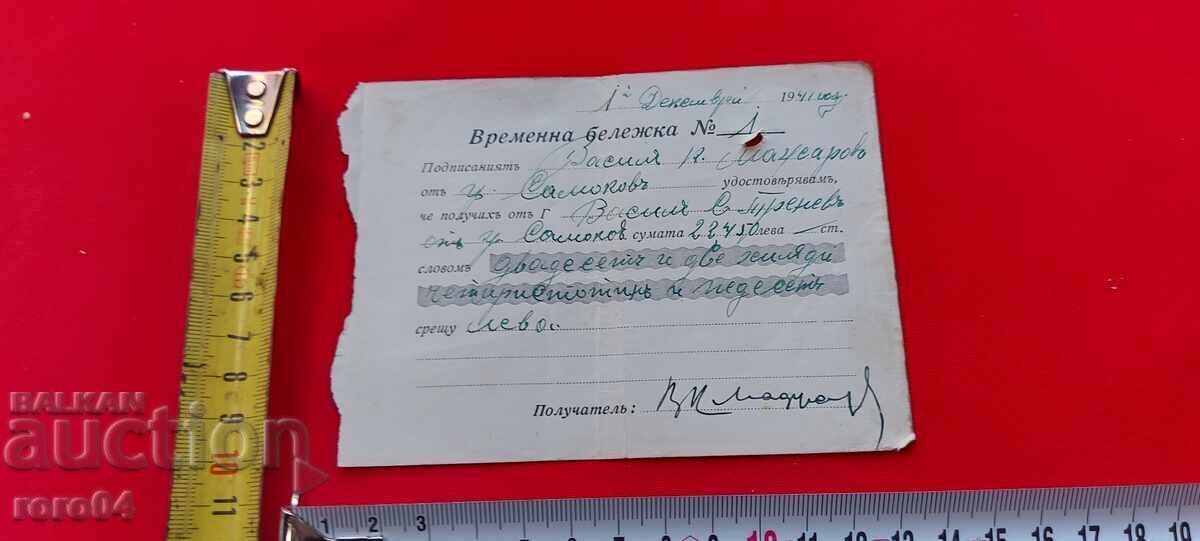 1й Декемврий 1941 год.
Временна бележка № 1
Подписаниятъ Василъ К. Маджаровъ
отъ гр. Самоковъ удостовѣрявамъ,
че получихъ отъ Г Василъ С. Треневъ
отъ гр. Самоков сумата 22450 лева — ст.
словомъ двадесетъ и две хиляди
четиристотинъ и педесетъ
срещу лева.
Получатель:
BALKAN
auction
roro04
2 3 4 5 6 7 8 9 10 11
1 2 3 5 6 7 8 9 10 11 12 13 14 15 16 17 18 19